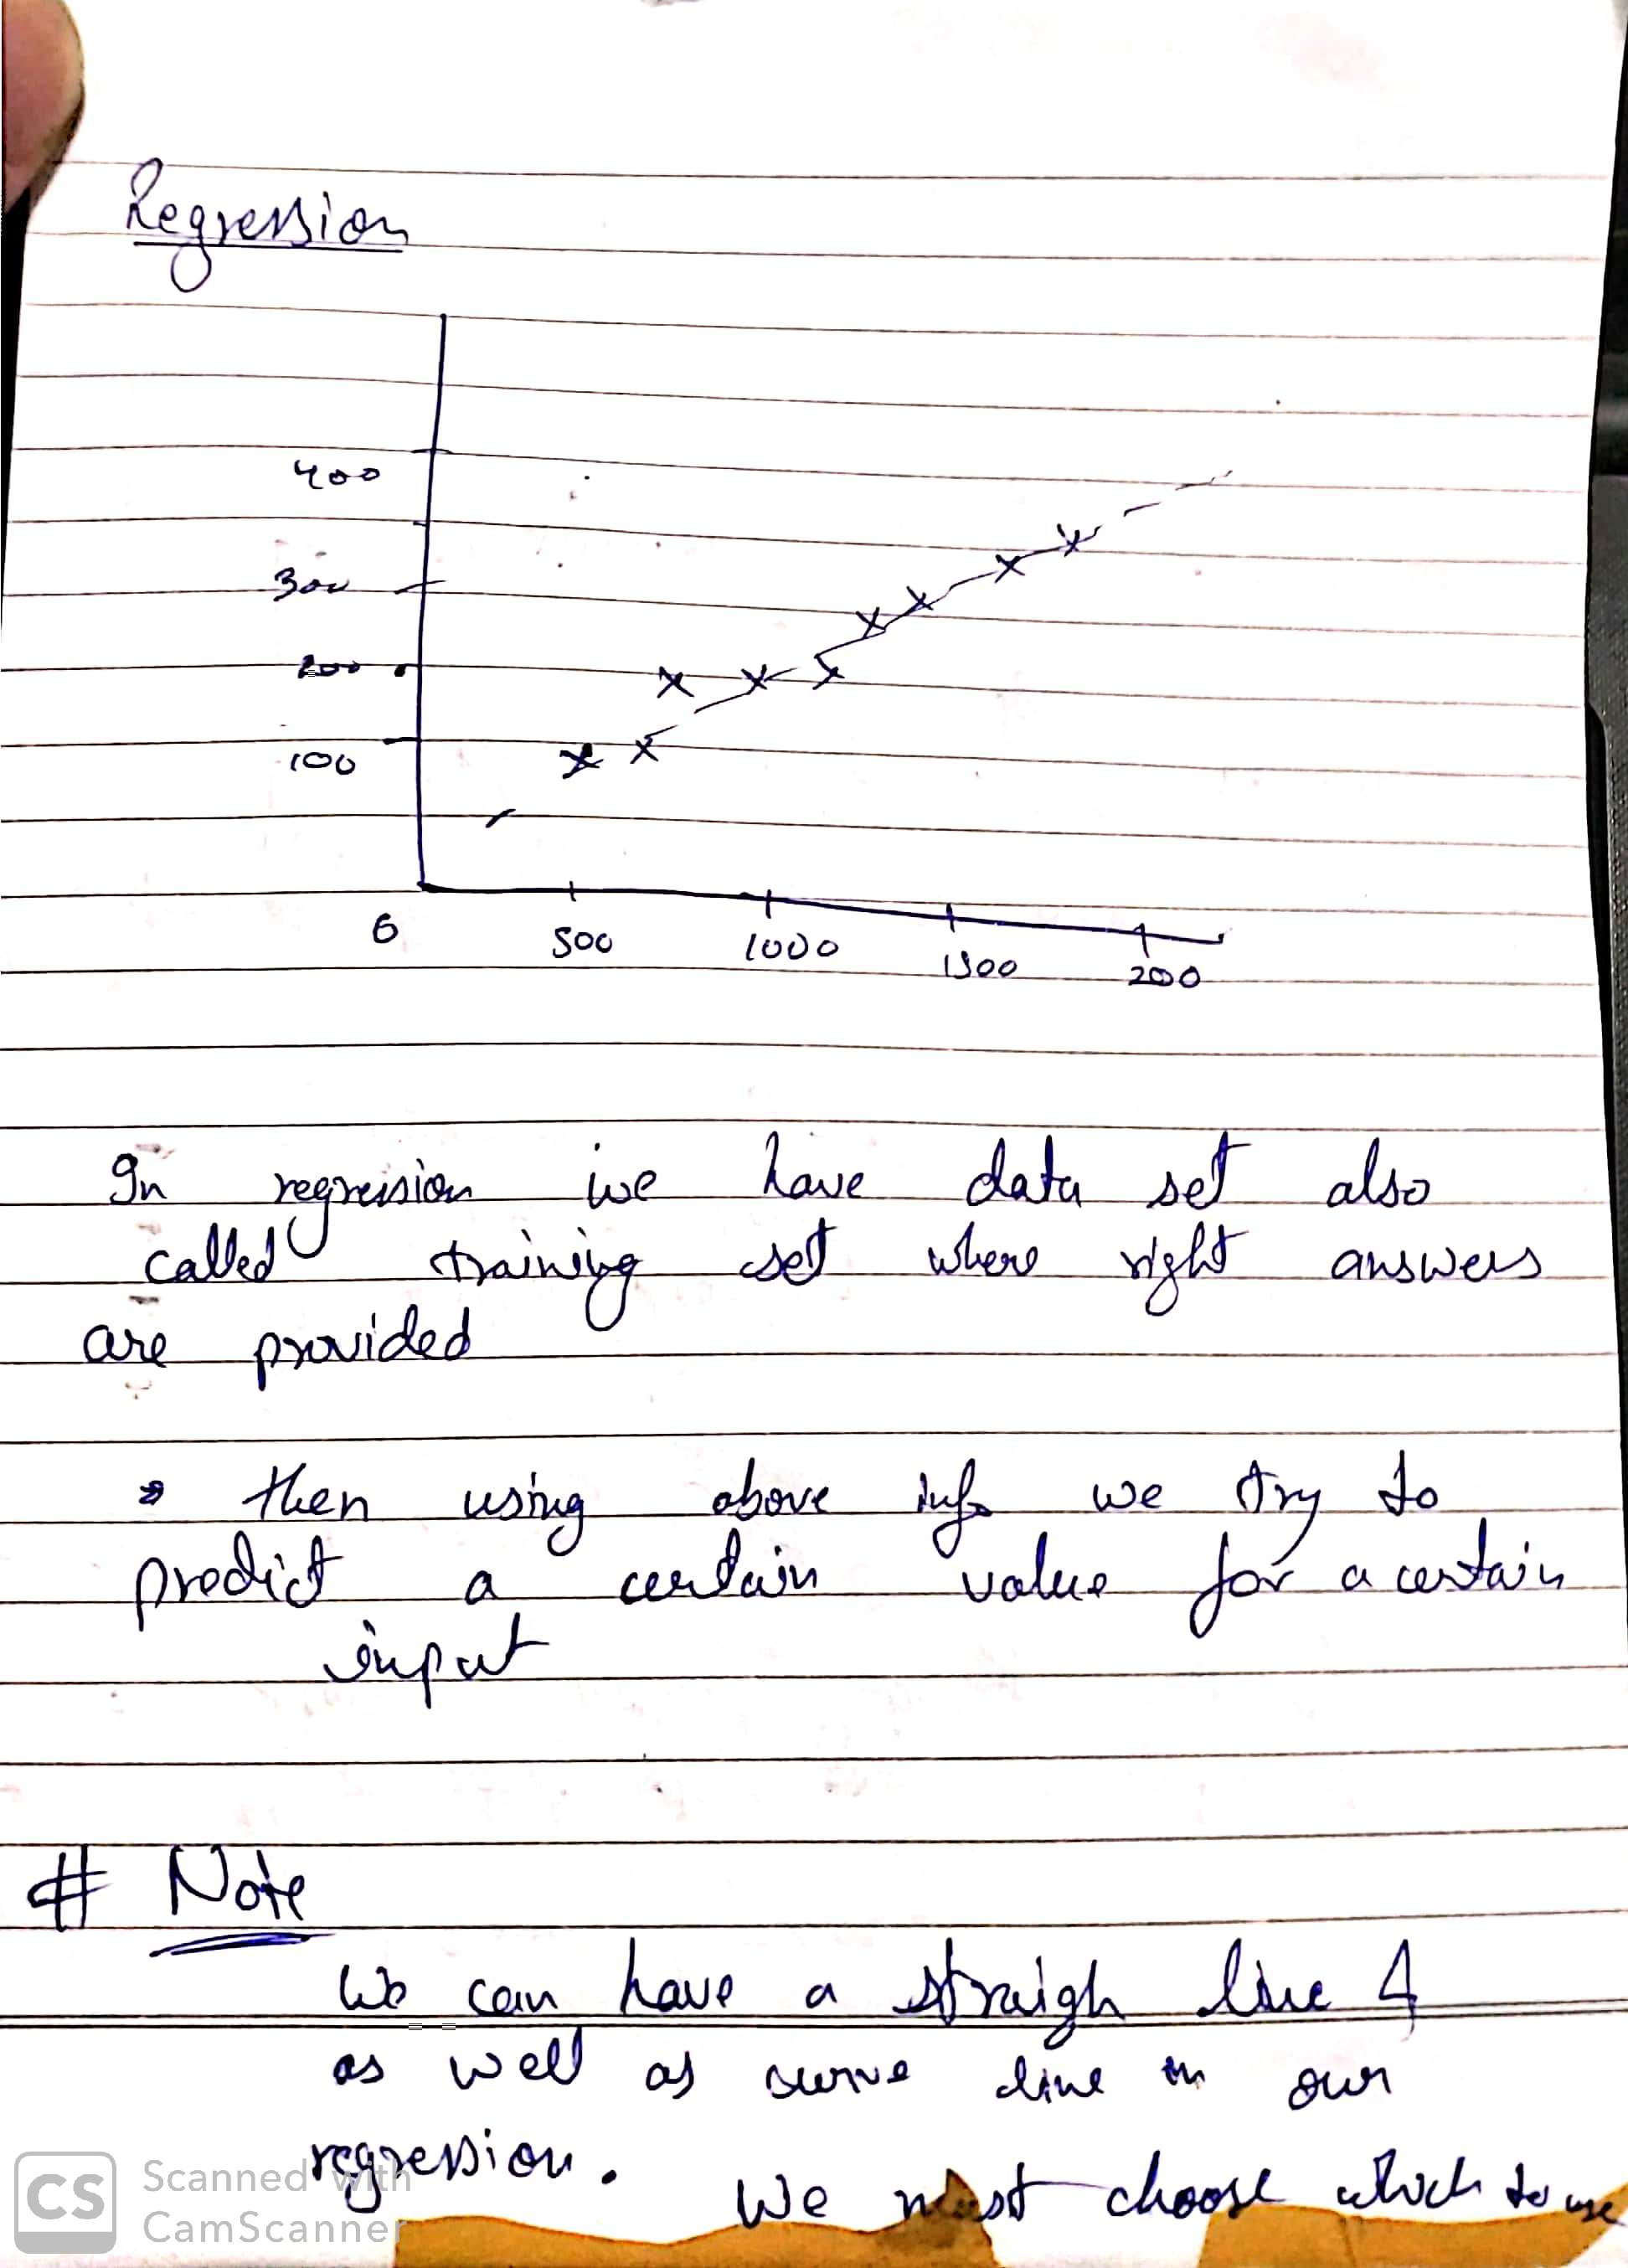 Regression
400
300
200
100
0
500
1000
1500
200
In regression we have data set also
called training set where right answers
are provided
then using above info we try to
predict a certain value for a certain
input
# Note
We can have a straigh line &
as well as curve line in our
regression.
We must choose which to use
CS Scanned with
CamScanner